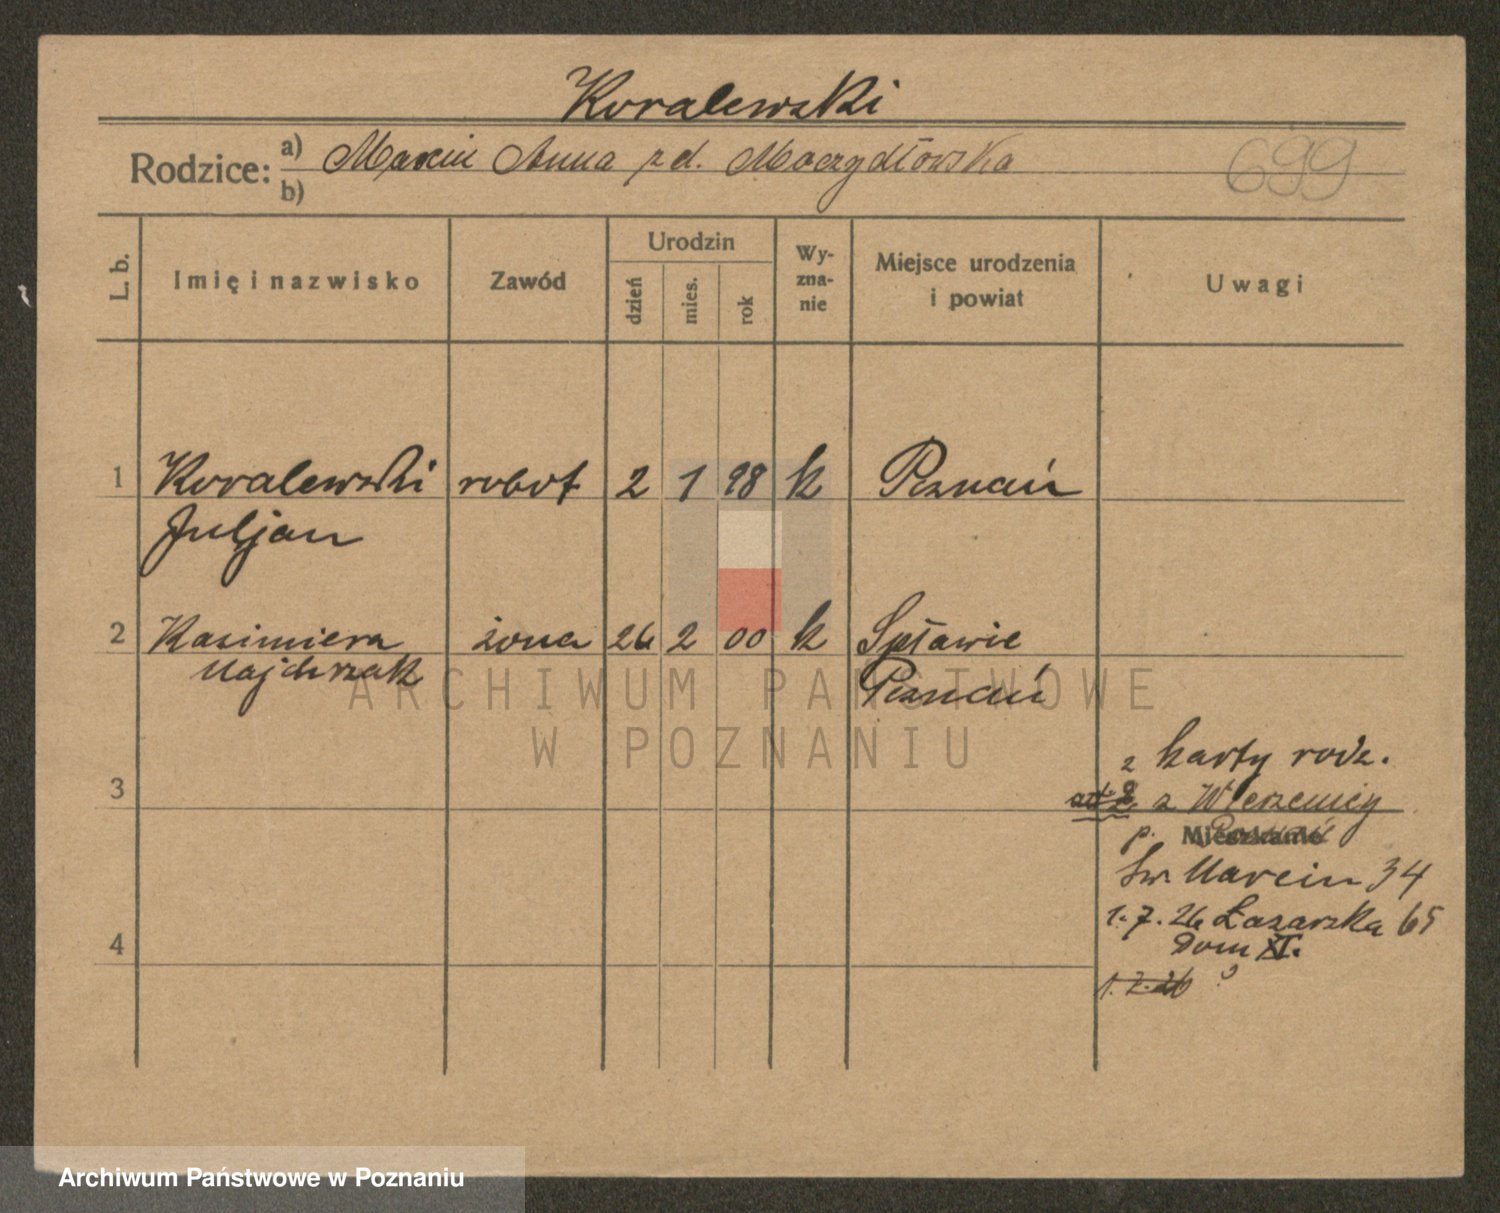 Koralewski
Rodzice: a) Marcin Anna zd. Moczydłowska
b)
699
L. b. Imię i nazwisko Zawód Urodzin dzień mies. rok Wy-zna-nie Miejsce urodzenia i powiat Uwagi
1 Koralewski robot 2 1 98 k Poznań
Juljan
2 Kasimiera żona 26 2 00 k Spławie
Majchrzak Poznań
z karty rodz.
3
ad. 2 z Wierzenicy
p. Mieszkanie
Św. Marcin 34
1.7.26 Łazarska 65
4
Dom XI.
1.7.26
ARCHIWUM PAŃSTWOWE
W POZNANIU
Archiwum Państwowe w Poznaniu